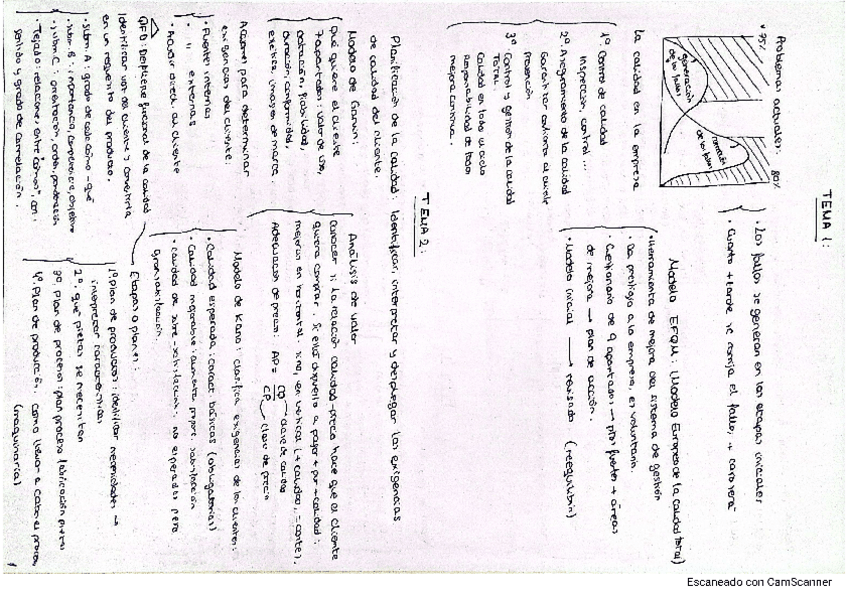 TEMA 1:
Problemas actuales:
75%
80%
generación de los fallos
corrección de los fallos
· Los fallos se generan en las etapas iniciales
· Cuanto + tarde se corrija el fallo, + caro será
La calidad en la empresa
1º. Control de calidad
Inspección, control ...
2º. Aseguramiento de la calidad
Garantizar confianza al cliente
Prevención
3º Control y gestión de la calidad
TOTAL.
Calidad en todo el ciclo
Responsabilidad de todos
Mejora continua.
Modelo EFQM: (Modelo Europeo de la calidad total)
· Herramienta de mejora del sistema de gestión
· Da prestigio a la empresa, es voluntaria.
· Cuestionario de 9 apartados → ptos fuertes + áreas
de mejora → plan de acción.
· Modelo inicial → revisado (reequilibrio)
TEMA 2:
Planificación de la calidad: Identificar, interpretar y desplegar las exigencias
de calidad del cliente.
Modelo de Garvin:
Qué quiere el cliente
7 apartados: Valor de uso,
fiabilidad,
duración, conformidad,
estética, imagen de marca
Acciones para determinar
exigencias del cliente:
· Fuentes internas
· " externas
· Acudir direct. al cliente
QFD: Despliegue funcional de la calidad →
Identificar voz del cliente y convertirla
en un requisito del producto.
· Subm. A: grado de cada cómo - qué
· Subm. B: importancia, competencia, objetivo
· Subm. C: orden, ponderación
· Tejado: relaciones entre "cómos" con
sentido y grado de correlación.
Análisis de valor
Conocer si la relación calidad-precio hace que el cliente
quiera comprar. Si está dispuesto a pagar + por + calidad:
mejoras en horizontal. Si no, en vertical (+ calidad, = coste).
Adecuación de precio: AP = CQ / CP
clase de calidad
clase de precio
Modelo de Kano: clasifica exigencias de los clientes:
· Calidad esperada: caract. básicas (obligatorias)
· Calidad mejorable: aumenta satisfacción
· Calidad de sobre-satisfacción: no esperados pero
gran satisfacción.
Etapas o planes:
1º Plan de productos: identificar necesidades →
interpretar características
2º. qué piezas se necesitan
3º. Plan de proceso: plan proceso fabricación
4º. Plan de producción: cómo llevar a cabo el proceso
(maquinaria)
1
Escaneado con CamScanner